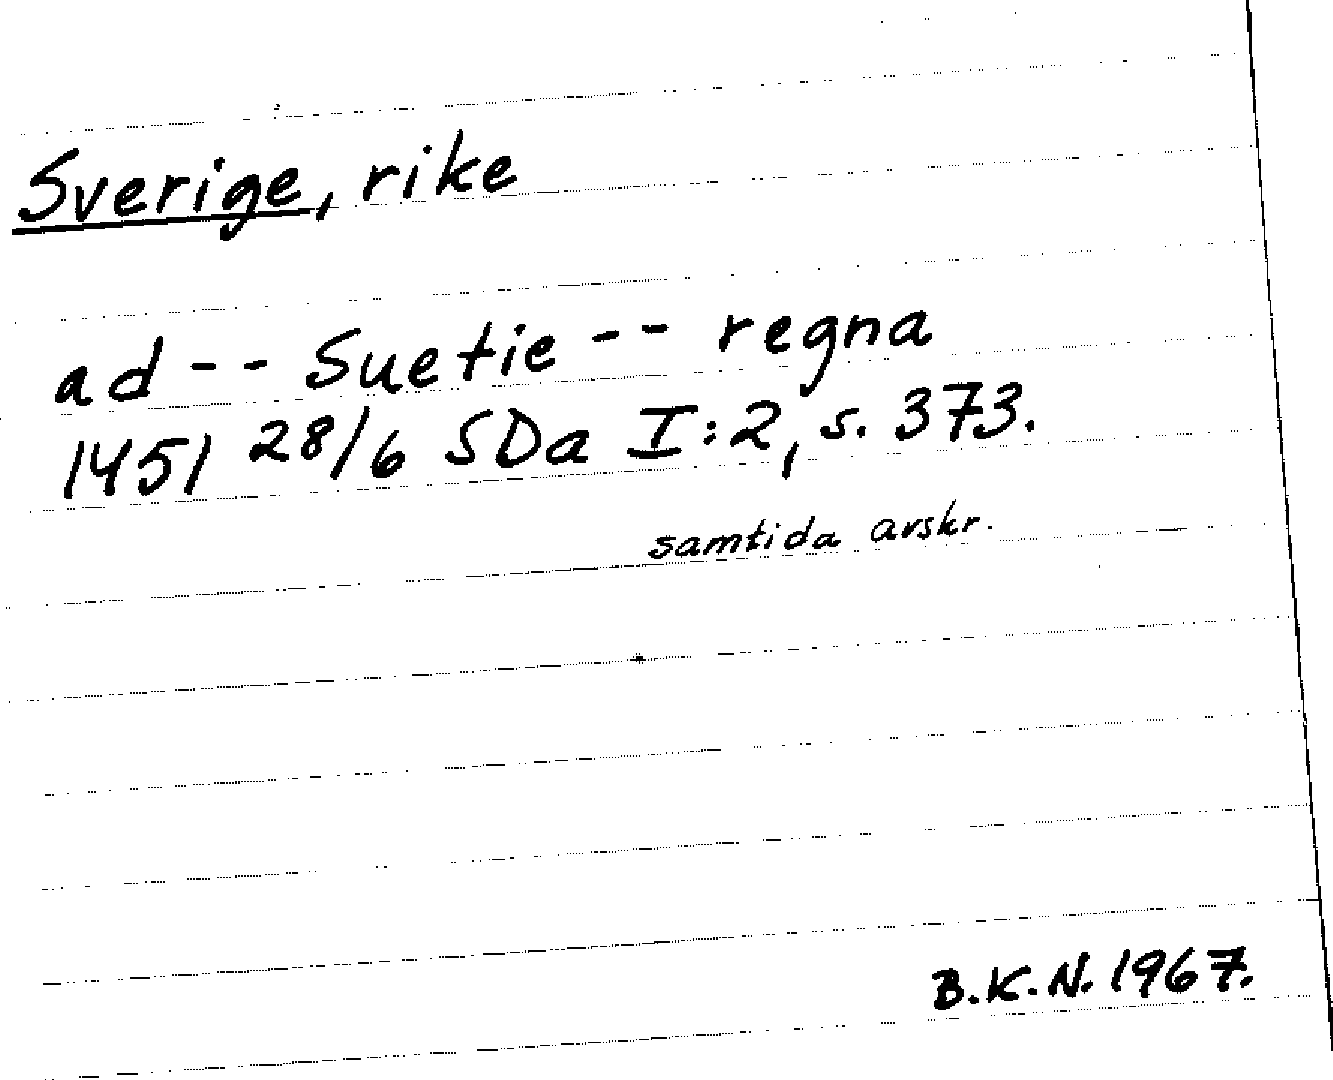 Sverige, rike
ad -- Suetie -- regna
1451 28/6 SDa I:2, s. 373.
samtida avskr.
B.K.N. 1967.